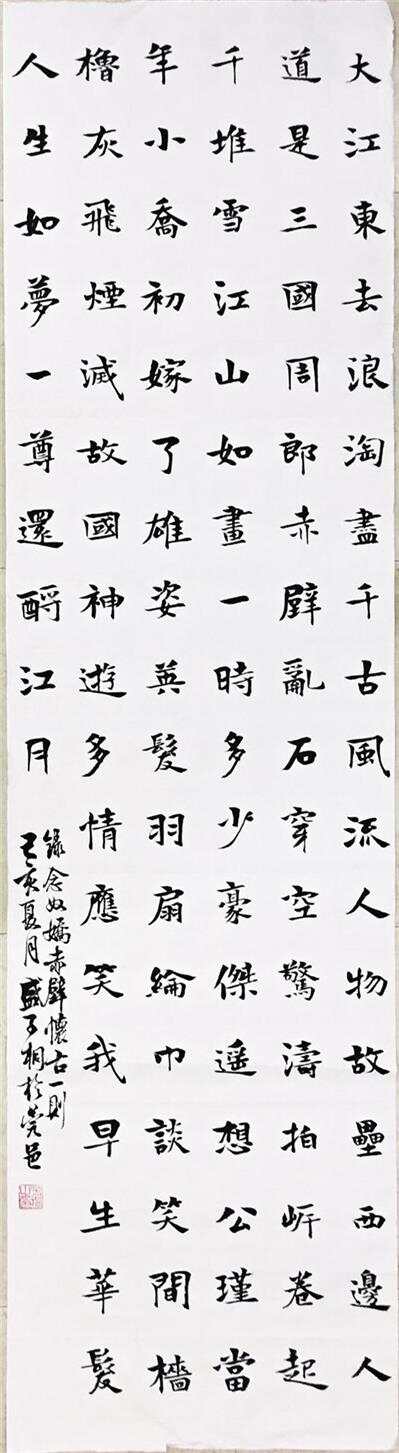 大江東去浪淘盡千古風流人物故壘西邊人
道是三國周郎赤壁亂石穿空驚濤拍岸卷起
千堆雪江山如畫一時多少豪傑遥想公瑾當
年小喬初嫁了雄姿英髮羽扇綸巾談笑間檣
櫓灰飛煙滅故國神遊多情應笑我早生華髮
人生如夢一尊還酹江月
錄念奴嬌赤壁懷古一則
己亥夏月盛子桐於莞邑